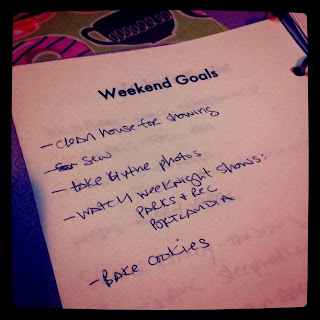 Weekend Goals
- clean house for showing
- sew
- take blythe photos
- watch weeknight shows:
PARKS + REC
PORTLANDIA
- BAKE COOKIES